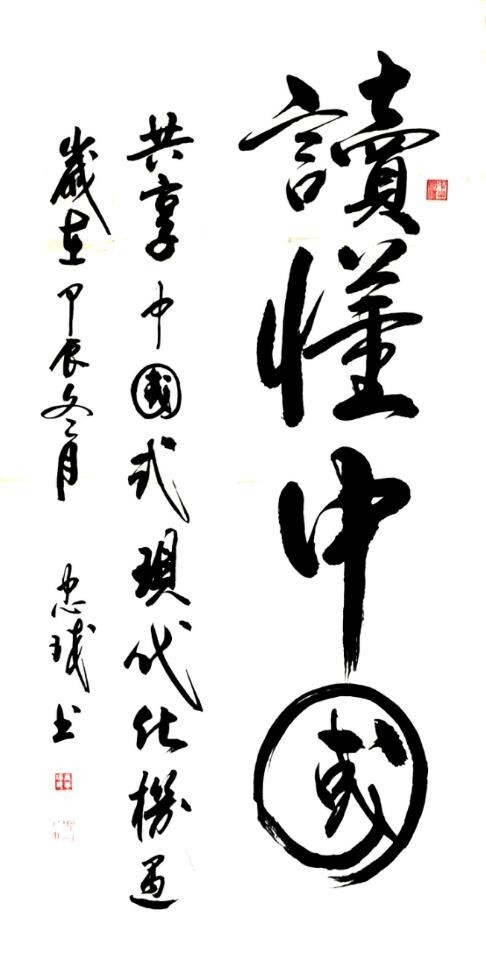 讀懂中國
共享中國式現代化機遇
歲在甲辰冬月 忠球書